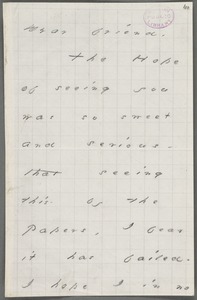 Dear friend.
The Hope
of seeing you
was so sweet
and serious -
that seeing
this - by the
Papers, I fear
it has failed -
I hope I in no